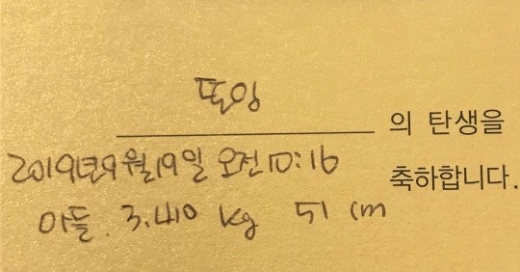 또잉 의 탄생을
2019년 9월 19일 오전 10:16 축하합니다.
아들. 3.410 kg 51 cm